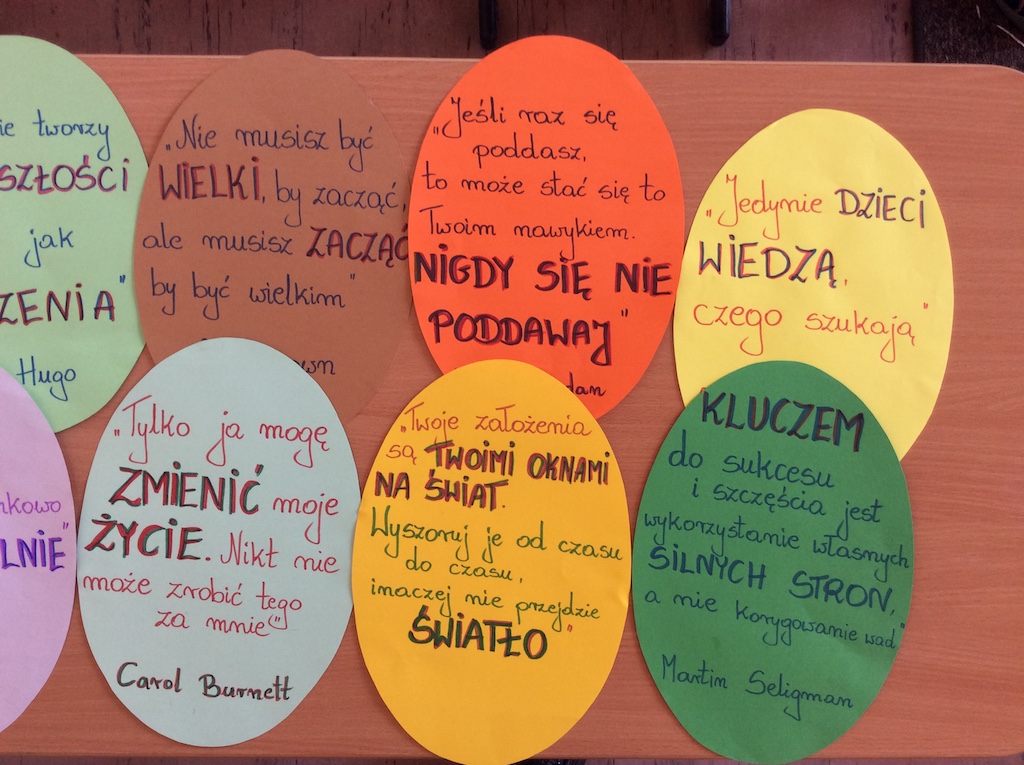 ie tworzy
SZŁOŚCI
jak
ZENIA"
Hugo
„Nie musisz być
WIELKI, by zacząć,
ale musisz ZACZĄĆ
by być wielkim"
wn
„Jeśli raz się
poddasz,
to może stać się to
Twoim nawykiem.
NIGDY SIĘ NIE
PODDAWAJ"
dan
„Jedynie DZIECI
WIEDZĄ,
czego szukają"
nkowo
LNIE"
„Tylko ja mogę
ZMIENIĆ moje
ŻYCIE. Nikt nie
może zrobić tego
za mnie"
Carol Burnett
„Twoje założenia
są TWOIMI OKNAMI
NA ŚWIAT.
Wyszoruj je od czasu
do czasu,
inaczej nie przejdzie
ŚWIATŁO"
KLUCZEM
do sukcesu
i szczęścia jest
wykorzystanie własnych
SILNYCH STRON,
a nie korygowanie wad"
Martin Seligman